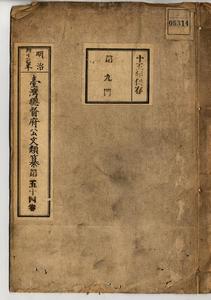 05314
十五年保存
第九門
明治
三十五年
臺灣總督府公文類纂第五十四卷